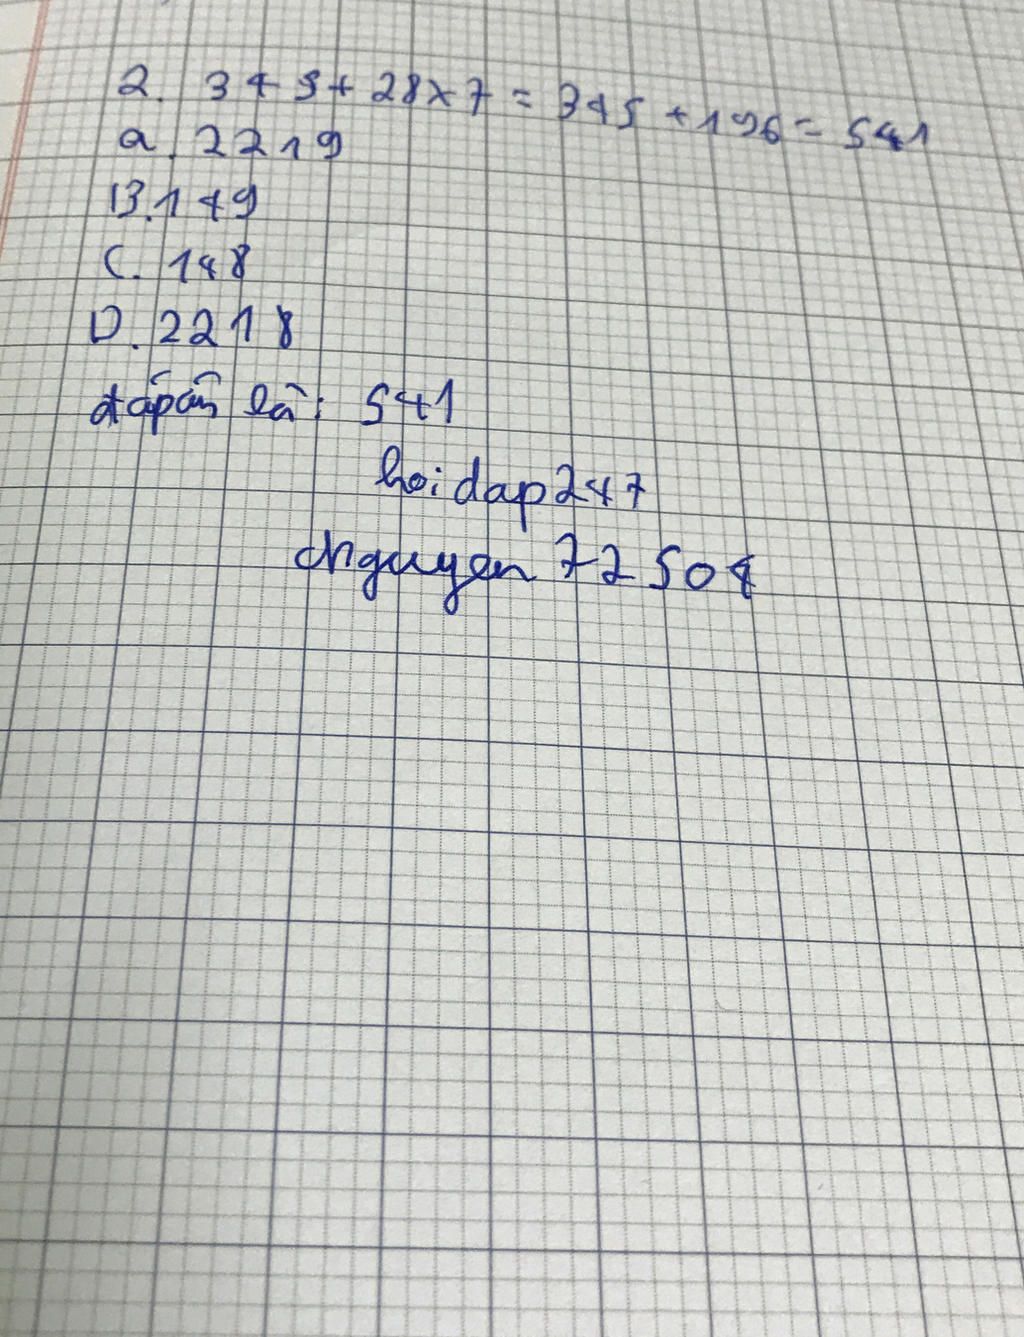 2. 345 + 28 x 7 = 345 + 196 = 541
a. 2219
B. 149
C. 148
D. 2218
đáp án là: 541
hoidap247
chguyen 72504